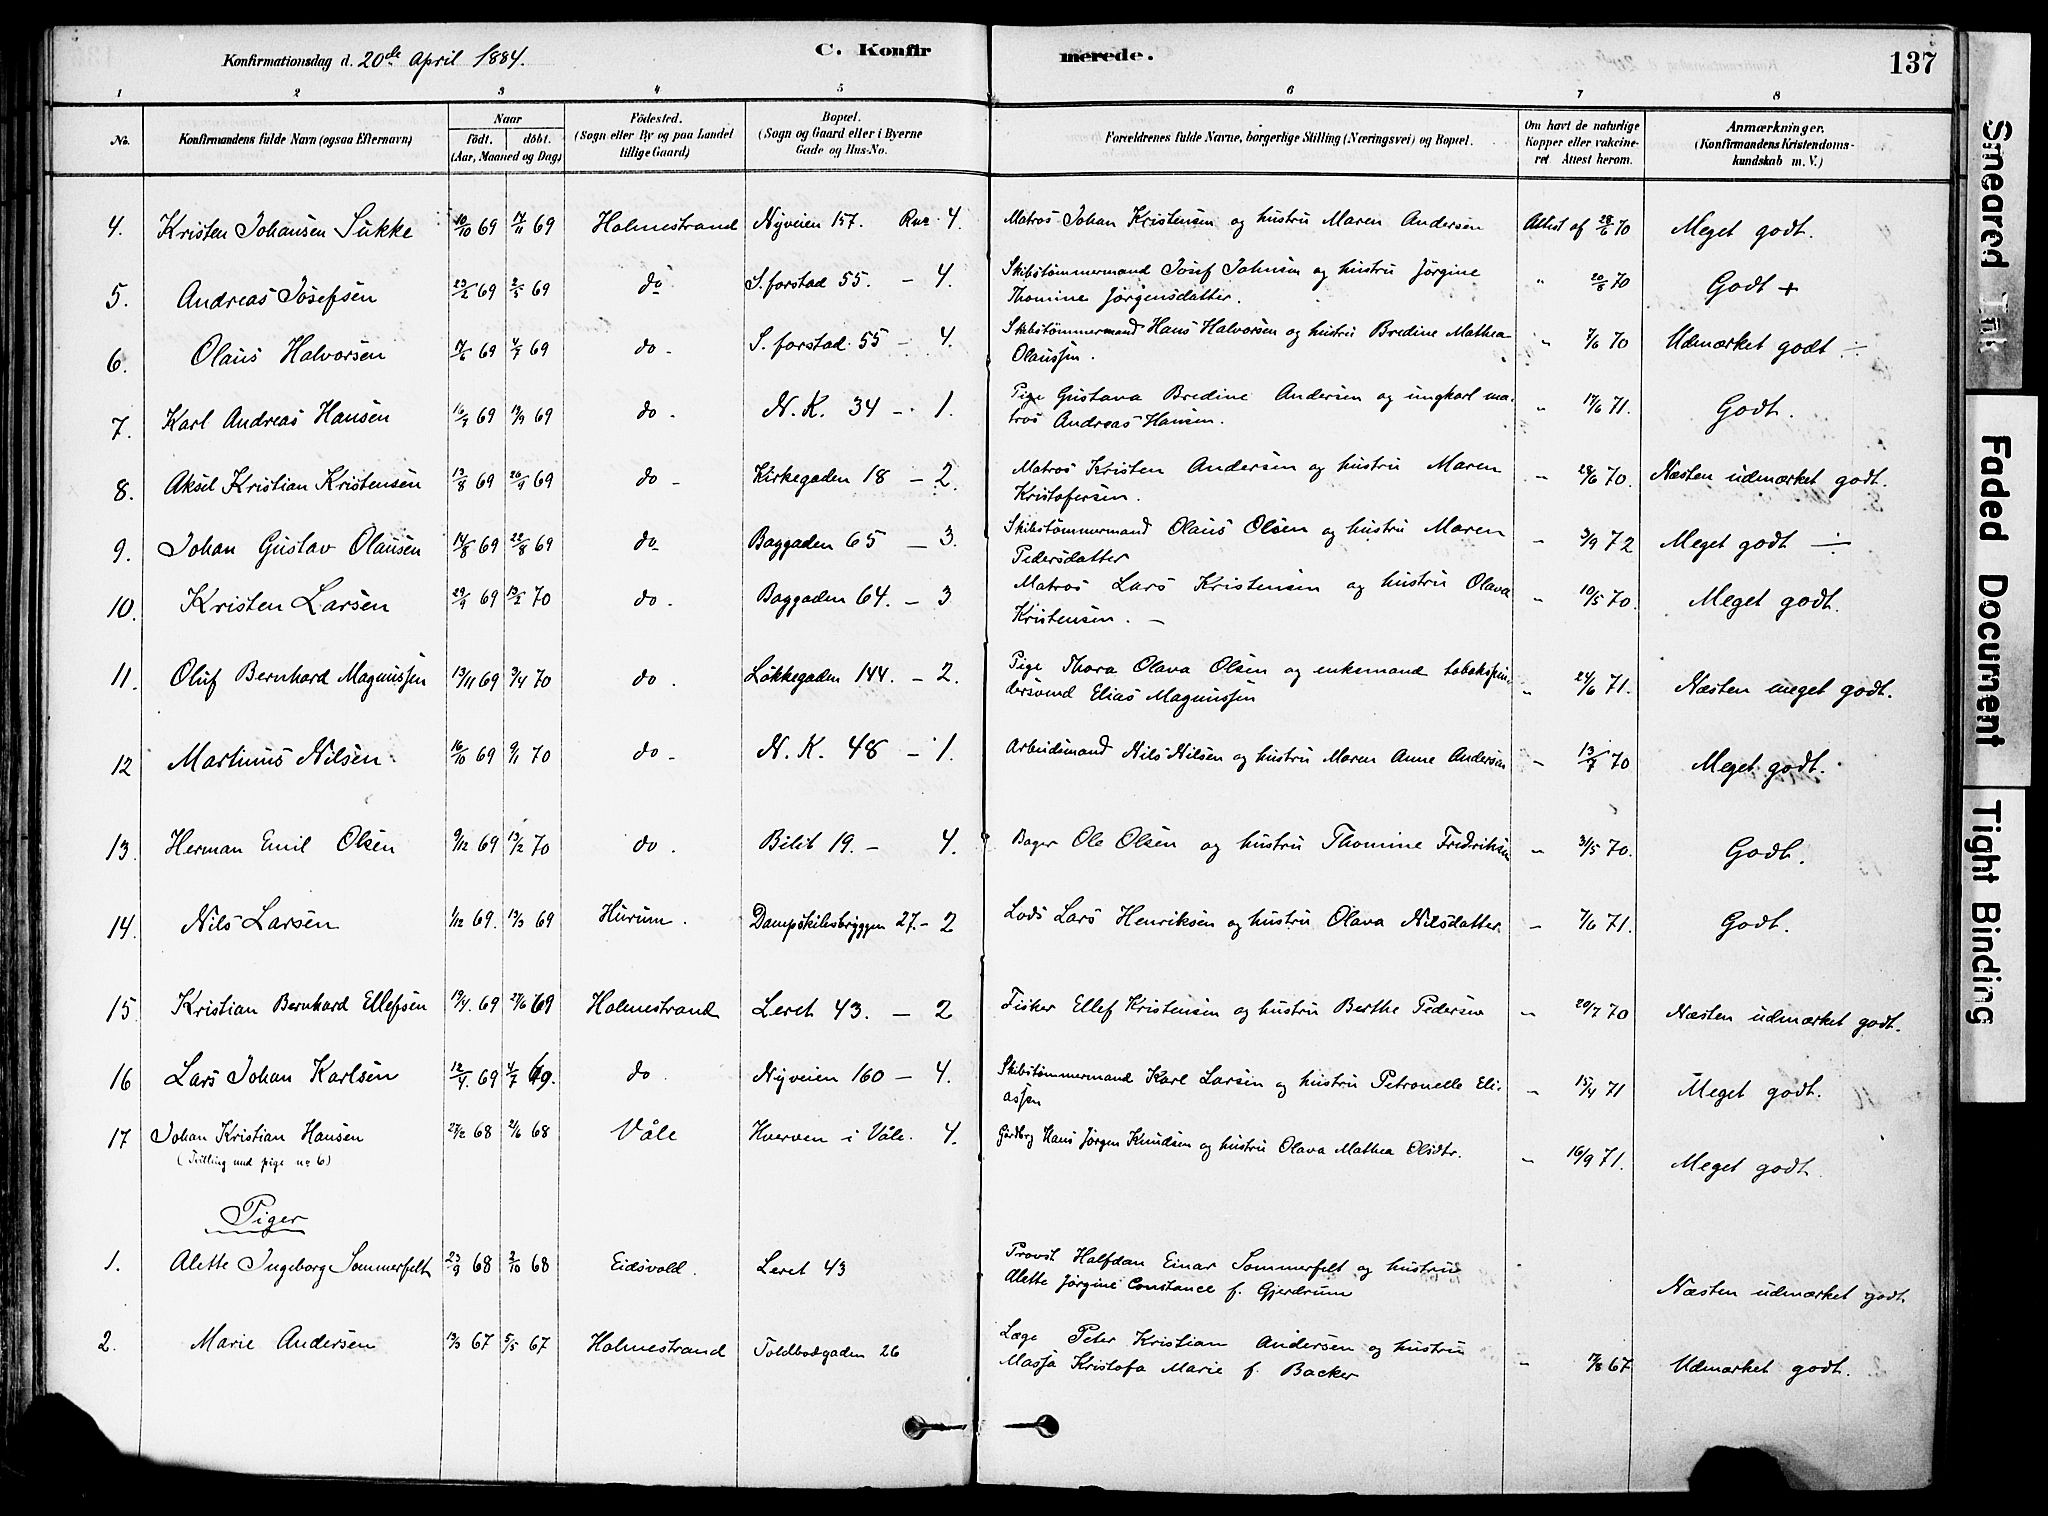 Konfirmationsdag d. 20de April 1884.
C. Konfirmerede.
137
1 2 3 4 5 6 7 8
No.
Konfirmandens fulde Navn (ogsaa Efternavn)
Naar
Födt. döbt.
(Aar, Maaned og Dag)
Födested.
(Sogn eller By og paa Landet
tillige Gaard)
Bopæl.
(Sogn og Gaard eller i Byerne
Gade og Hus-No.
Forældrenes fulde Navne, borgerlige Stilling (Næringsvei) og Bopæl.
Om havt de naturlige
Kopper eller vakcine-
ret Attest herom.
Anmærkninger.
(Konfirmandens Kristendoms-
kundskab m. V.)
4. Kristen Johansen Sukke 10/10 69 14/11 69 Holmestrand Nyveien 157. 4. Matros Johan Kristensen og hustru Maren Andersen Attest af 28/6 70 Meget godt.
5. Andreas Josefsen 23/2 69 2/5 69 do S. forstad 55. — 4. Skibstømmermand Josef Johnsen og hustru Jørgine
Thomine Jørgensdatter. " 20/6 70 Godt +
6. Olaus Halvorsen 69 4/7 69 do — S. forstad 55 — 4. Skibstømmermand Hans Halvorsen og hustru Bredine Mathea
Olaussen. " 7/6 70 Udmærket godt ÷
7. Karl Andreas Hansen 16/7 69 19/9 69 do — N. K. 34 — 1. Pige Gustava Bredine Andersen og ungkarl ma-
tros Andreas Hansen. " 17/6 71. Godt.
8. Aksel Kristian Kristensen 13/8 69 26/9 69 do — Kirkegaden 18 — 2. Matros Kristen Andersen og hustru Maren
Kristofersen. " 28/6 70. Næsten udmærket godt.
9. Johan Gustav Olausen 14/8 69 22/8 69 do Baggaden 65 — 3. Skibstømmermand Olaus Olsen og hustru Maren
Pedersdatter " 3/9 72 Meget godt ÷
10. Kristen Larsen 29/9 69 13/2 70 do. Baggaden 64. — 3 Matros Lars Kristensen og hustru Olava
Kristensen. — " 10/5 70. Meget godt.
11. Oluf Bernhard Magnussen 13/11 69 3/4 70 do. Løkkegaden 144. — 2. Pige Thora Olava Olsen og enkemand tobakspin-
dersvend Elias Magnussen " 24/6 71. Næsten meget godt.
12 Martinus Nilsen 16/10 69 9/1 70 do — N. K. 48 — 1. Arbeidsmand Nils Nilsen og hustru Maren Anne Andersen " 13/7 70 Meget godt.
13. Herman Emil Olsen 9/12 69 13/2 70 do. Belit 19. — 4. Bager Ole Olsen og hustru Thomine Fredriksen " 3/5 70. Godt.
14. Nils Larsen 1/12 69. 13/3 69 Hurum. Dampskibsbryggen 27. — 2 Lods Lars Henriksen og hustru Olava Nilsdatter. " 7/6 71. Godt.
15. Kristian Bernhard Ellefsen 19/4. 69 27/6 69 Holmestrand Leret 43. — 2 Fisker Ellef Kristensen og hustru Berthe Pedersen " 20/7 70 Næsten udmærket godt.
16 Lars Johan Karlsen 12/4. 69 4/7 69. do. Nyveien 160 — 4. Skibstømmermand Karl Larsen og hustru Petronelle Eli-
assen " 15/4 71 Meget godt.
17 Johan Kristian Hansen 27/2 68 2/6 68 Våle Hverven i Våle. 4. Gårdbrg Hans Jørgen Knudsen og hustru Olava Mathea Olsdtr. " 16/9 71. Meget godt.
(Tvilling med pige no 6)
Piger
1. Alette Ingeborg Sommerfelt 23/9 68 2/10 68 Eidsvold. Leret 43 Provst Halfdan Einar Sommerfelt og hustru
Alette Jørgine Constance f. Gjerdrum Næsten udmærket godt
2. Marie Andersen 13/3 67 5/5 67 Holmestrand Toldbodgaden 26 Læge Peter Kristian Andersen og hustru
Massa Kristofa Marie f. Backer " 7/8 67 Udmærket godt.
Smeared Ink
Faded Document
Tight Binding